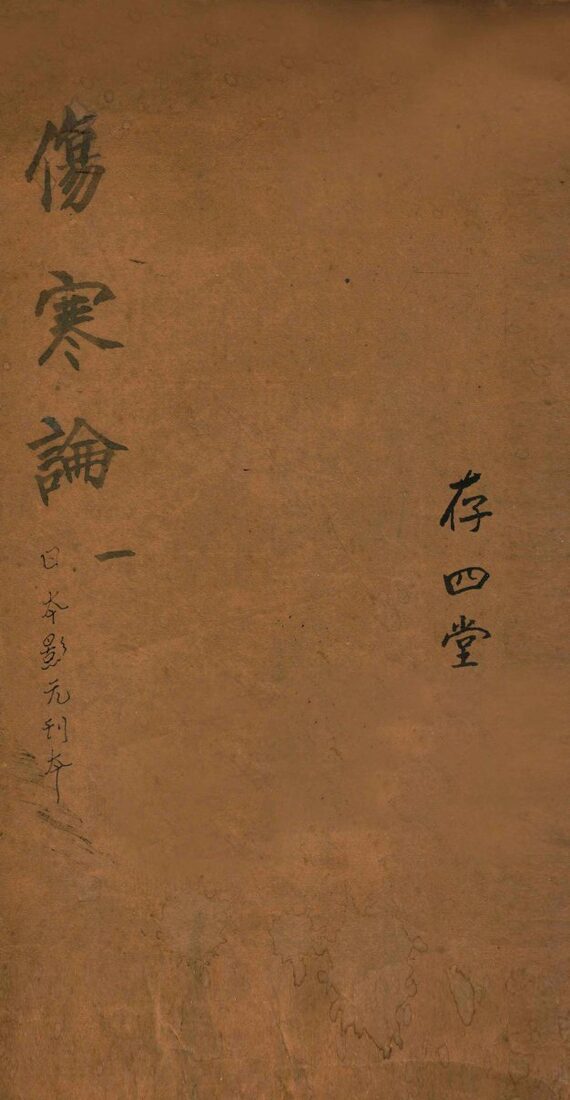 存四堂
傷寒論
一
日本影元刊本